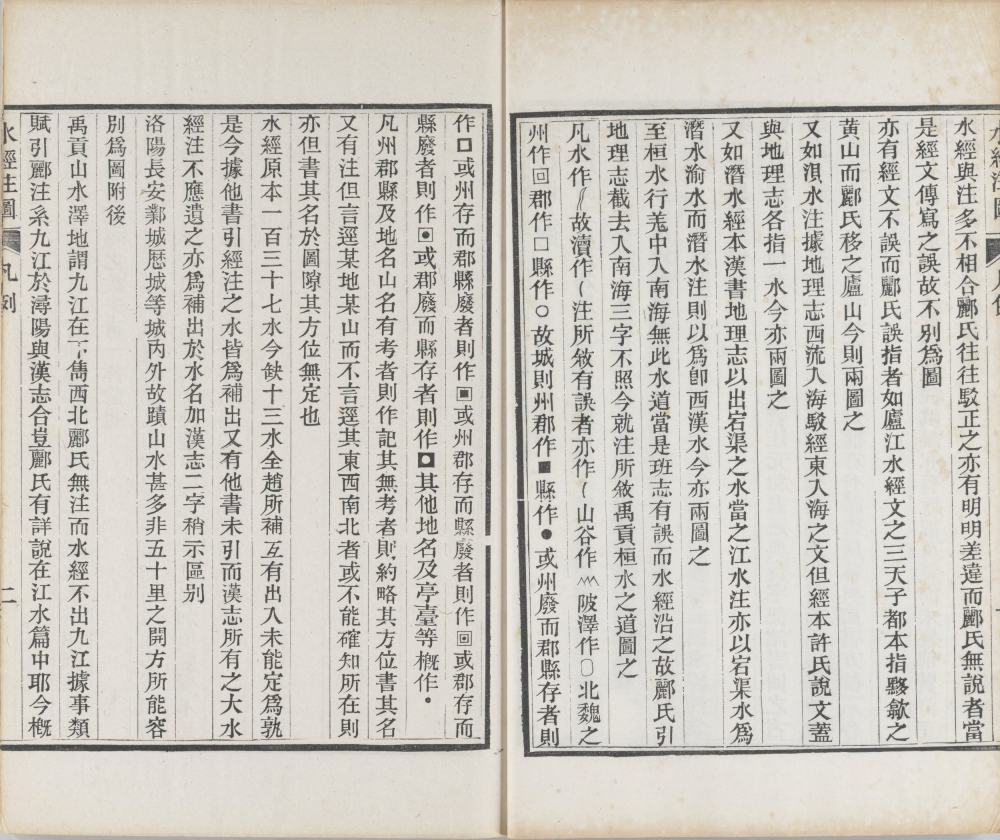 水經與注多不相合酈氏往往駁正之亦有明明差違而酈氏無說者當
是經文傳寫之誤故不別爲圖
亦有經文不誤而酈氏誤指者如廬江水經文之三天子都本指黟歙之
黄山而酈氏移之廬山今則兩圖之
又如浿水注據地理志西流入海駁經東入海之文但經本許氏說文蓋
與地理志各指一水今亦兩圖之
又如潛水經本漢書地理志以出宕渠之水當之江水注亦以宕渠水爲
潛水渝水而潛水注則以爲卽西漢水今亦兩圖之
至桓水行羌中入南海無此水道當是班志有誤而水經沿之故酈氏引
地理志截去入南海三字不照今就注所敘禹貢桓水之道圖之
凡水作故瀆作注所敘有誤者亦作山谷作陂澤作北魏之
州作回郡作□縣作○故城則州郡作■縣作●或州廢而郡縣存者則
作□或州存而郡縣廢者則作▣或州郡存而縣廢者則作回或郡存而
縣廢者則作或郡廢而縣存者則作其他地名及亭臺等槪作・
凡州郡縣及地名山名有考者則作記其無考者則約略其方位書其名
又有注但言逕某地某山而不言逕其東西南北者或不能確知所在則
亦但書其名於圖隙其方位無定也
水經原本一百三十七水今缺十三水全趙所補互有出入未能定爲孰
是今據他書引經注之水皆爲補出又有他書未引而漢志所有之大水
經注不應遺之亦爲補出於水名加漢志二字稍示區别
洛陽長安鄴城厯城等城内外故蹟山水甚多非五十里之開方所能容
別爲圖附後
禹貢山水澤地謂九江在下雋西北酈氏無注而水經不出九江據事類
賦引酈注系九江於潯陽與漢志合豈酈氏有詳說在江水篇中耶今槪
水經注圖 凡例 二